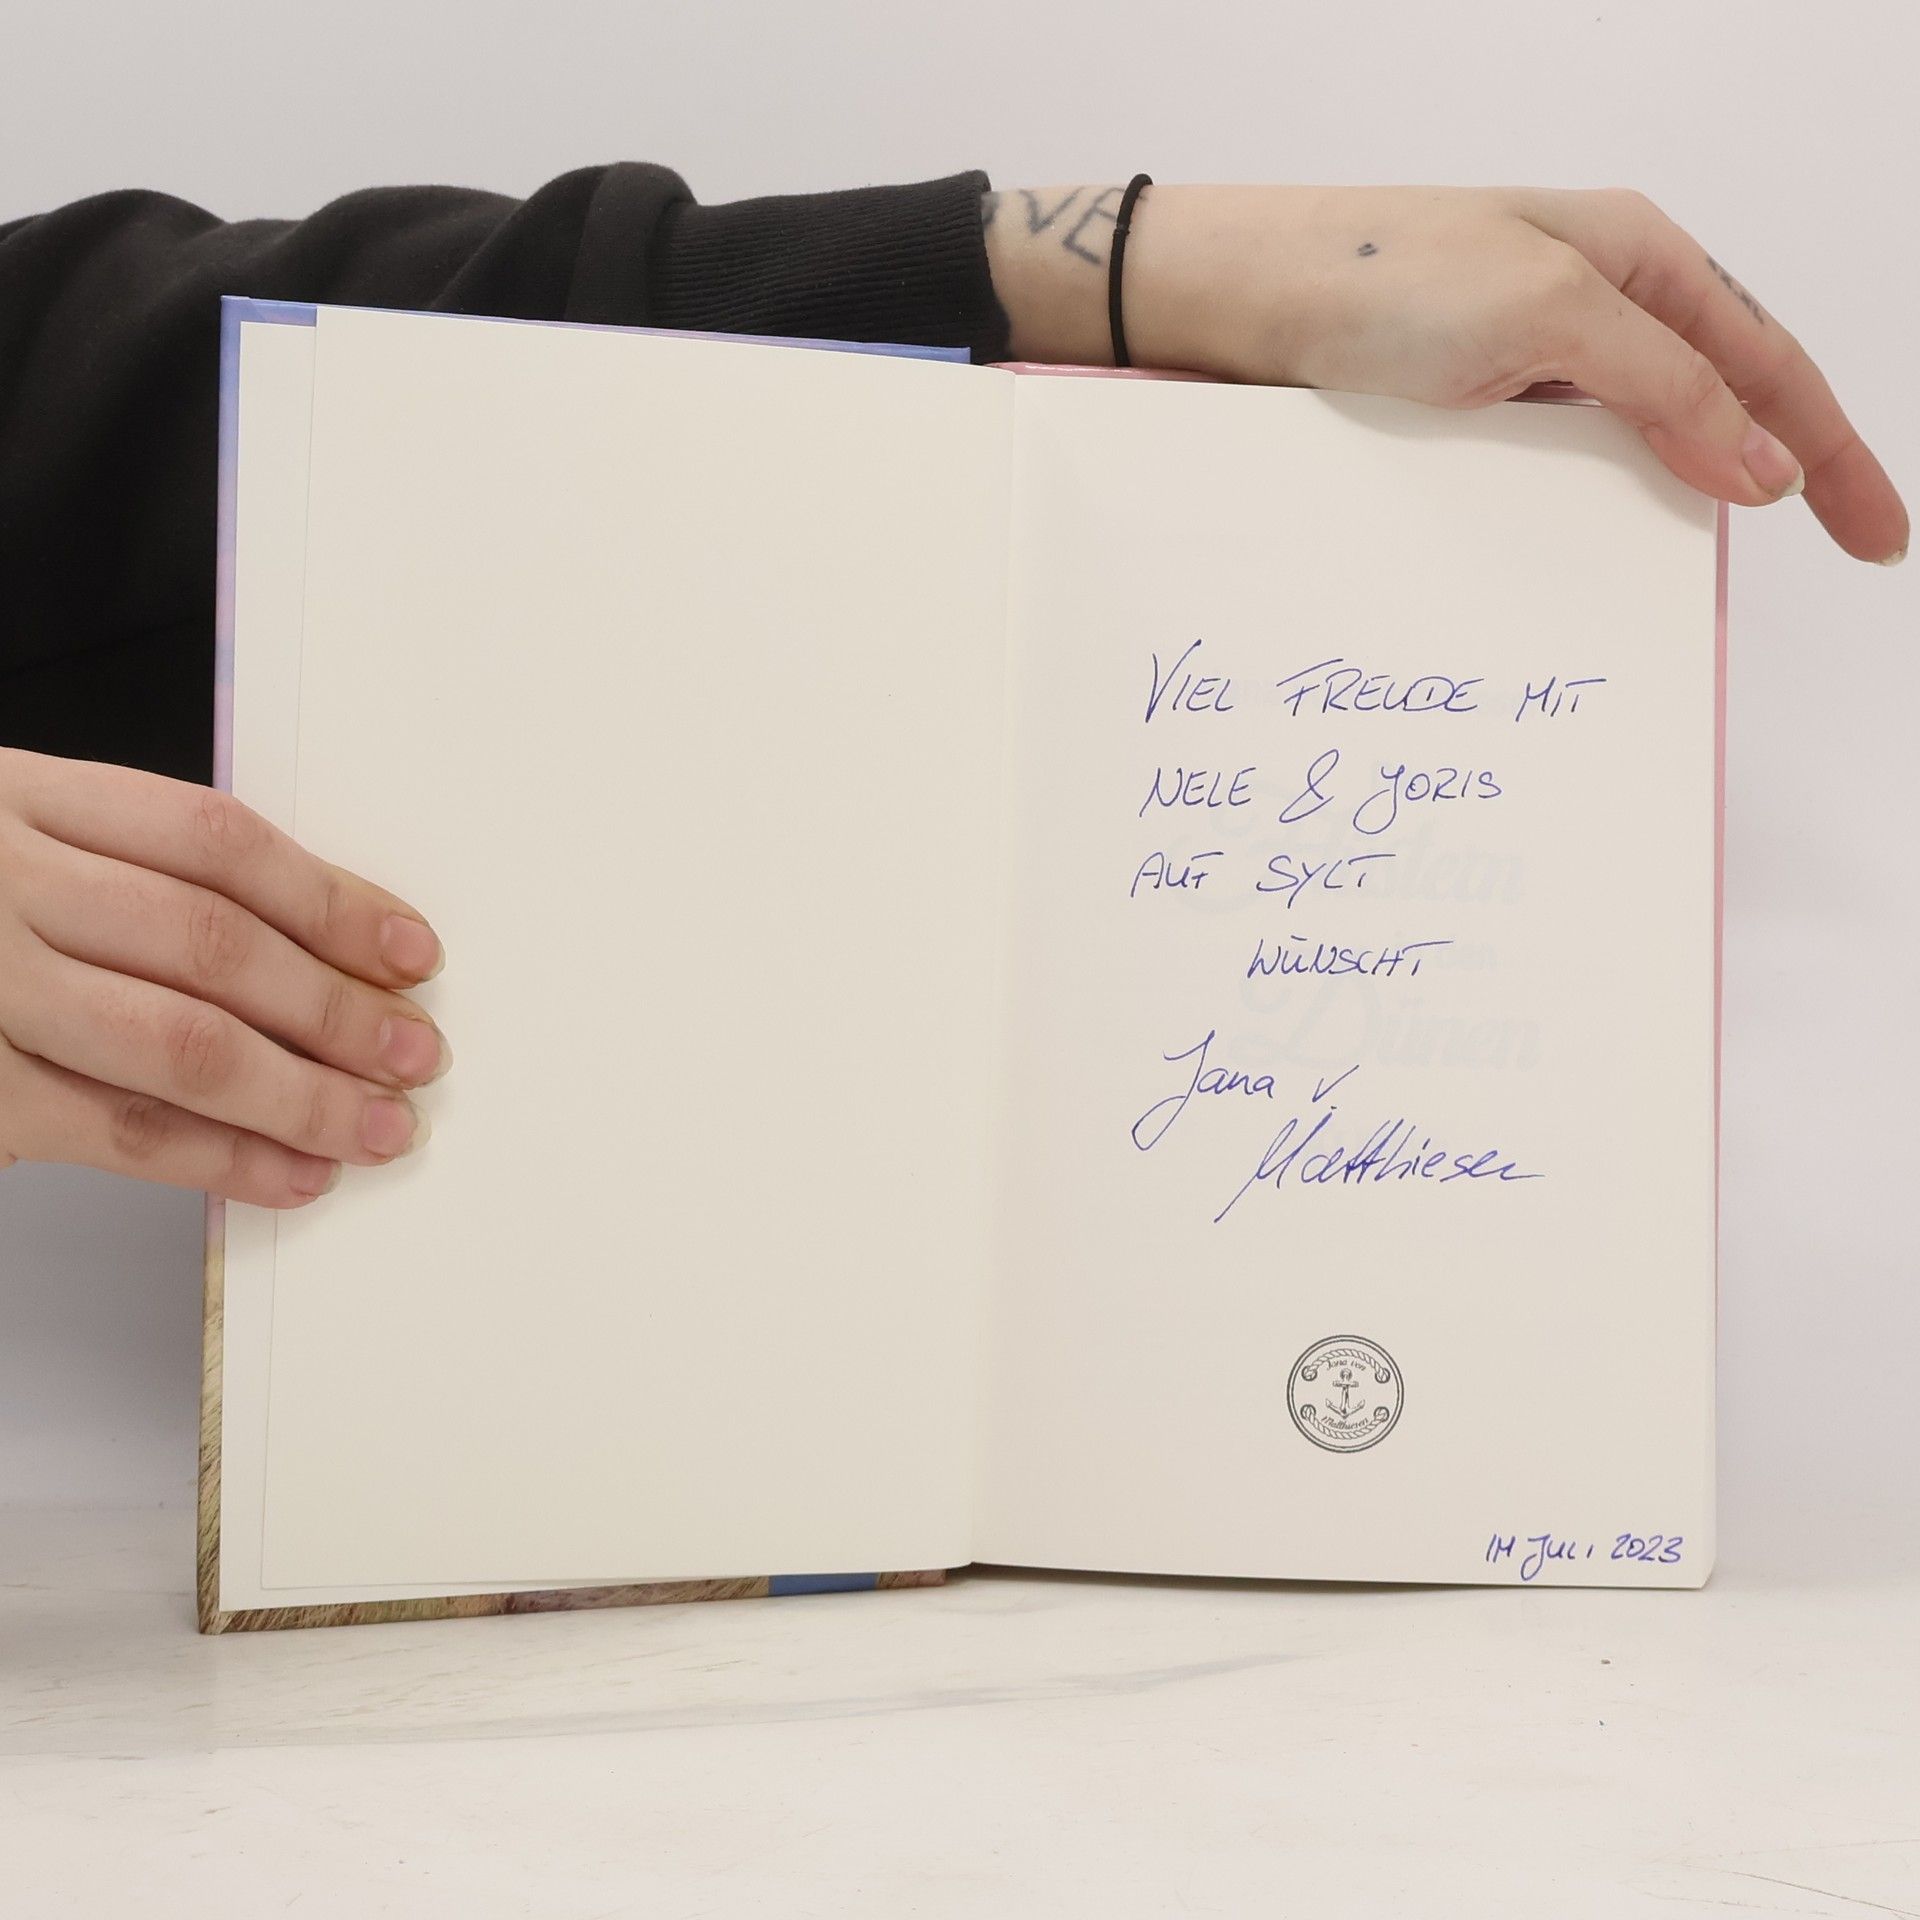 VIEL FREUDE MIT
NELE & JORIS
AUF SYLT
WÜNSCHT
Jana v.
Matthiesen
Jana von
Matthiesen
IM JULI 2023
den
Dünen